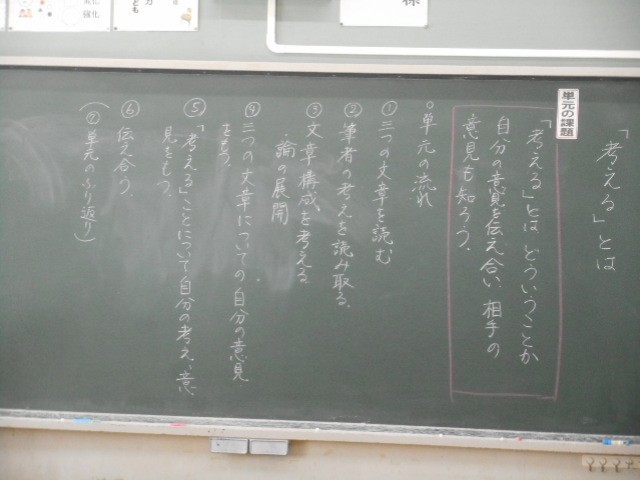 「考える」とは
単元の課題
「考える」とは どういうことか
自分の意見を伝え合い、相手の
意見も知ろう。
○単元の流れ
①三つの文章を読む
②筆者の考えを読み取る。
③文章構成を考える
・論の展開
④三つの文章についての自分の意見
をもつ。
⑤「考える」ことについて自分の考え、意
見をもつ。
⑥伝え合う。
(⑦単元のふり返り)
様
強化